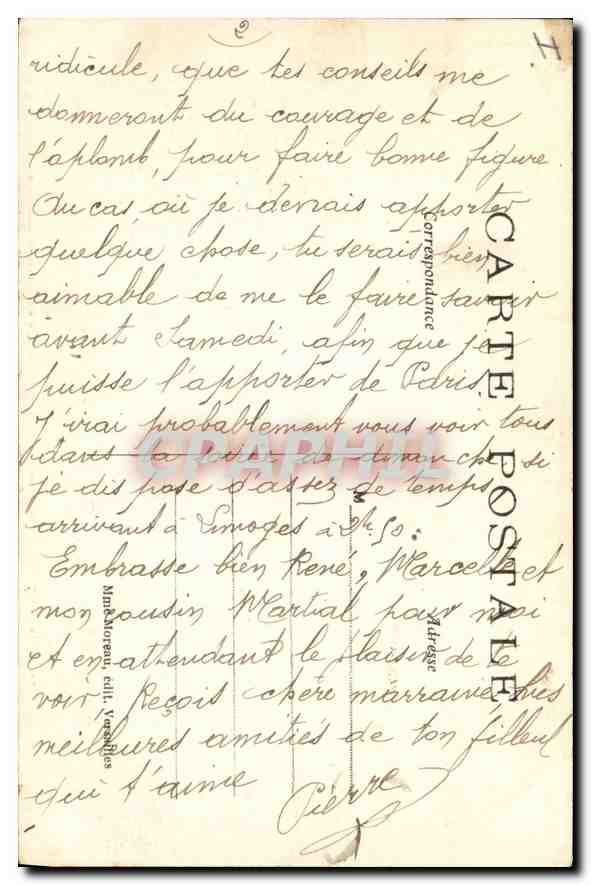 2
I.
ridicule, que tes conseils me
donneront du courage et de
l'aplomb, pour faire bonne figure.
Au cas où je devrais apporter
quelque chose, tu serais bien
aimable de me le faire savoir
avant Samedi, afin que je
puisse l'apporter de Paris.
J'irai probablement vous voir tous
dans la soirée de dimanche si
je dispose d'assez de temps
arrivant à Limoges à 2h.50.
Embrasse bien René, Marcelle et
mon cousin Martial pour moi
et en attendant le plaisir de te
voir, Reçois chère marraine mes
meilleures amitiés de ton filleul
qui t'aime
Pierre
CARTE POSTALE
Correspondance
Adresse
M
Mme Moreau, édit. Versailles
CPAPHIL